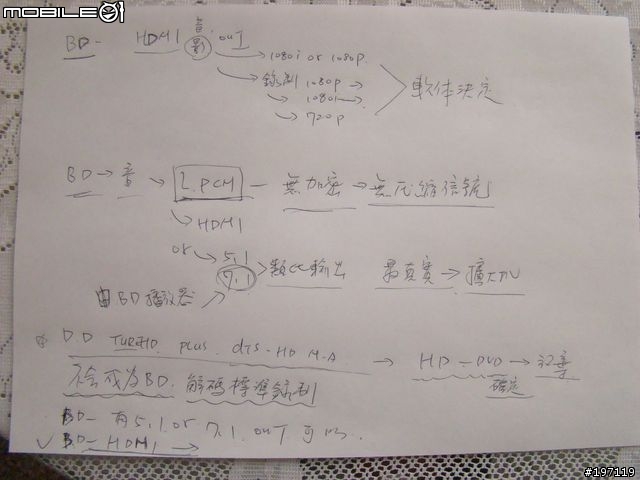 MOBILE01
BD- HDMI 音 影 OUT
→ 1080i or 1080p.
→ 錄製 1080p → 軟体決定
→ 1080i →
→ 720p
BD → 音 → L.PCM — 無加密 → 無压缩信號
↳ HDMI
or → 5.1
7.1 > 類比輸出 最真實 → 擴大機
由BD播放器
D.D TUREHD. PLUS. dts-HD M.A → HD-DVD →
不会成為BD. 解碼標準 確定
BD- 有5.1 or 7.1. OUT 可以..
✓ BD- HDMI →
#197119